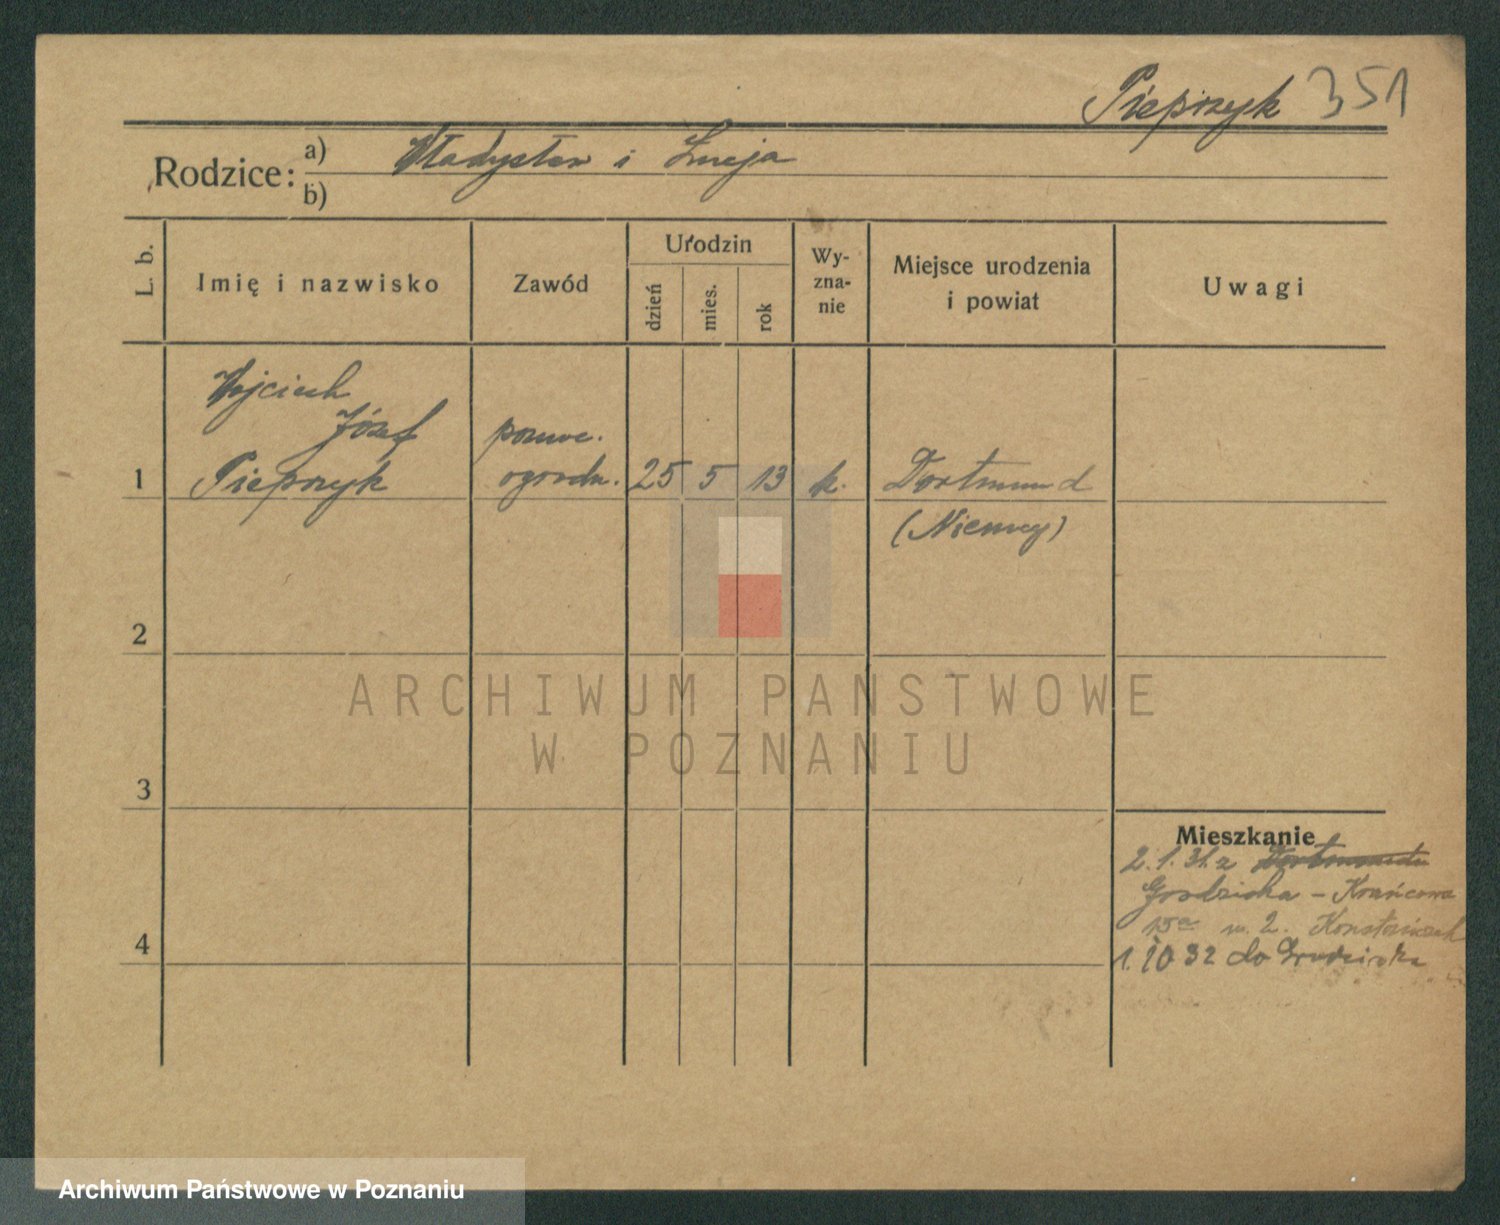 Pieprzyk 351
Rodzice: a) Władysław i Łucja
b)
L. b.
Imię i nazwisko
Zawód
Urodzin
dzień
mies.
rok
Wy-
zna-
nie
Miejsce urodzenia
i powiat
Uwagi
Wojciech
Józef
1 Pieprzyk
pomoc.
ogrodn.
25 5 13 k. Dortmund
(Niemcy)
2
3
4
Mieszkanie
2.1.31. z Dortmundu
Grodziska - Krańcowa
15a m. 2.
1.10 32 do Grodziska
ARCHIWUM PAŃSTWOWE
W POZNANIU
Archiwum Państwowe w Poznaniu